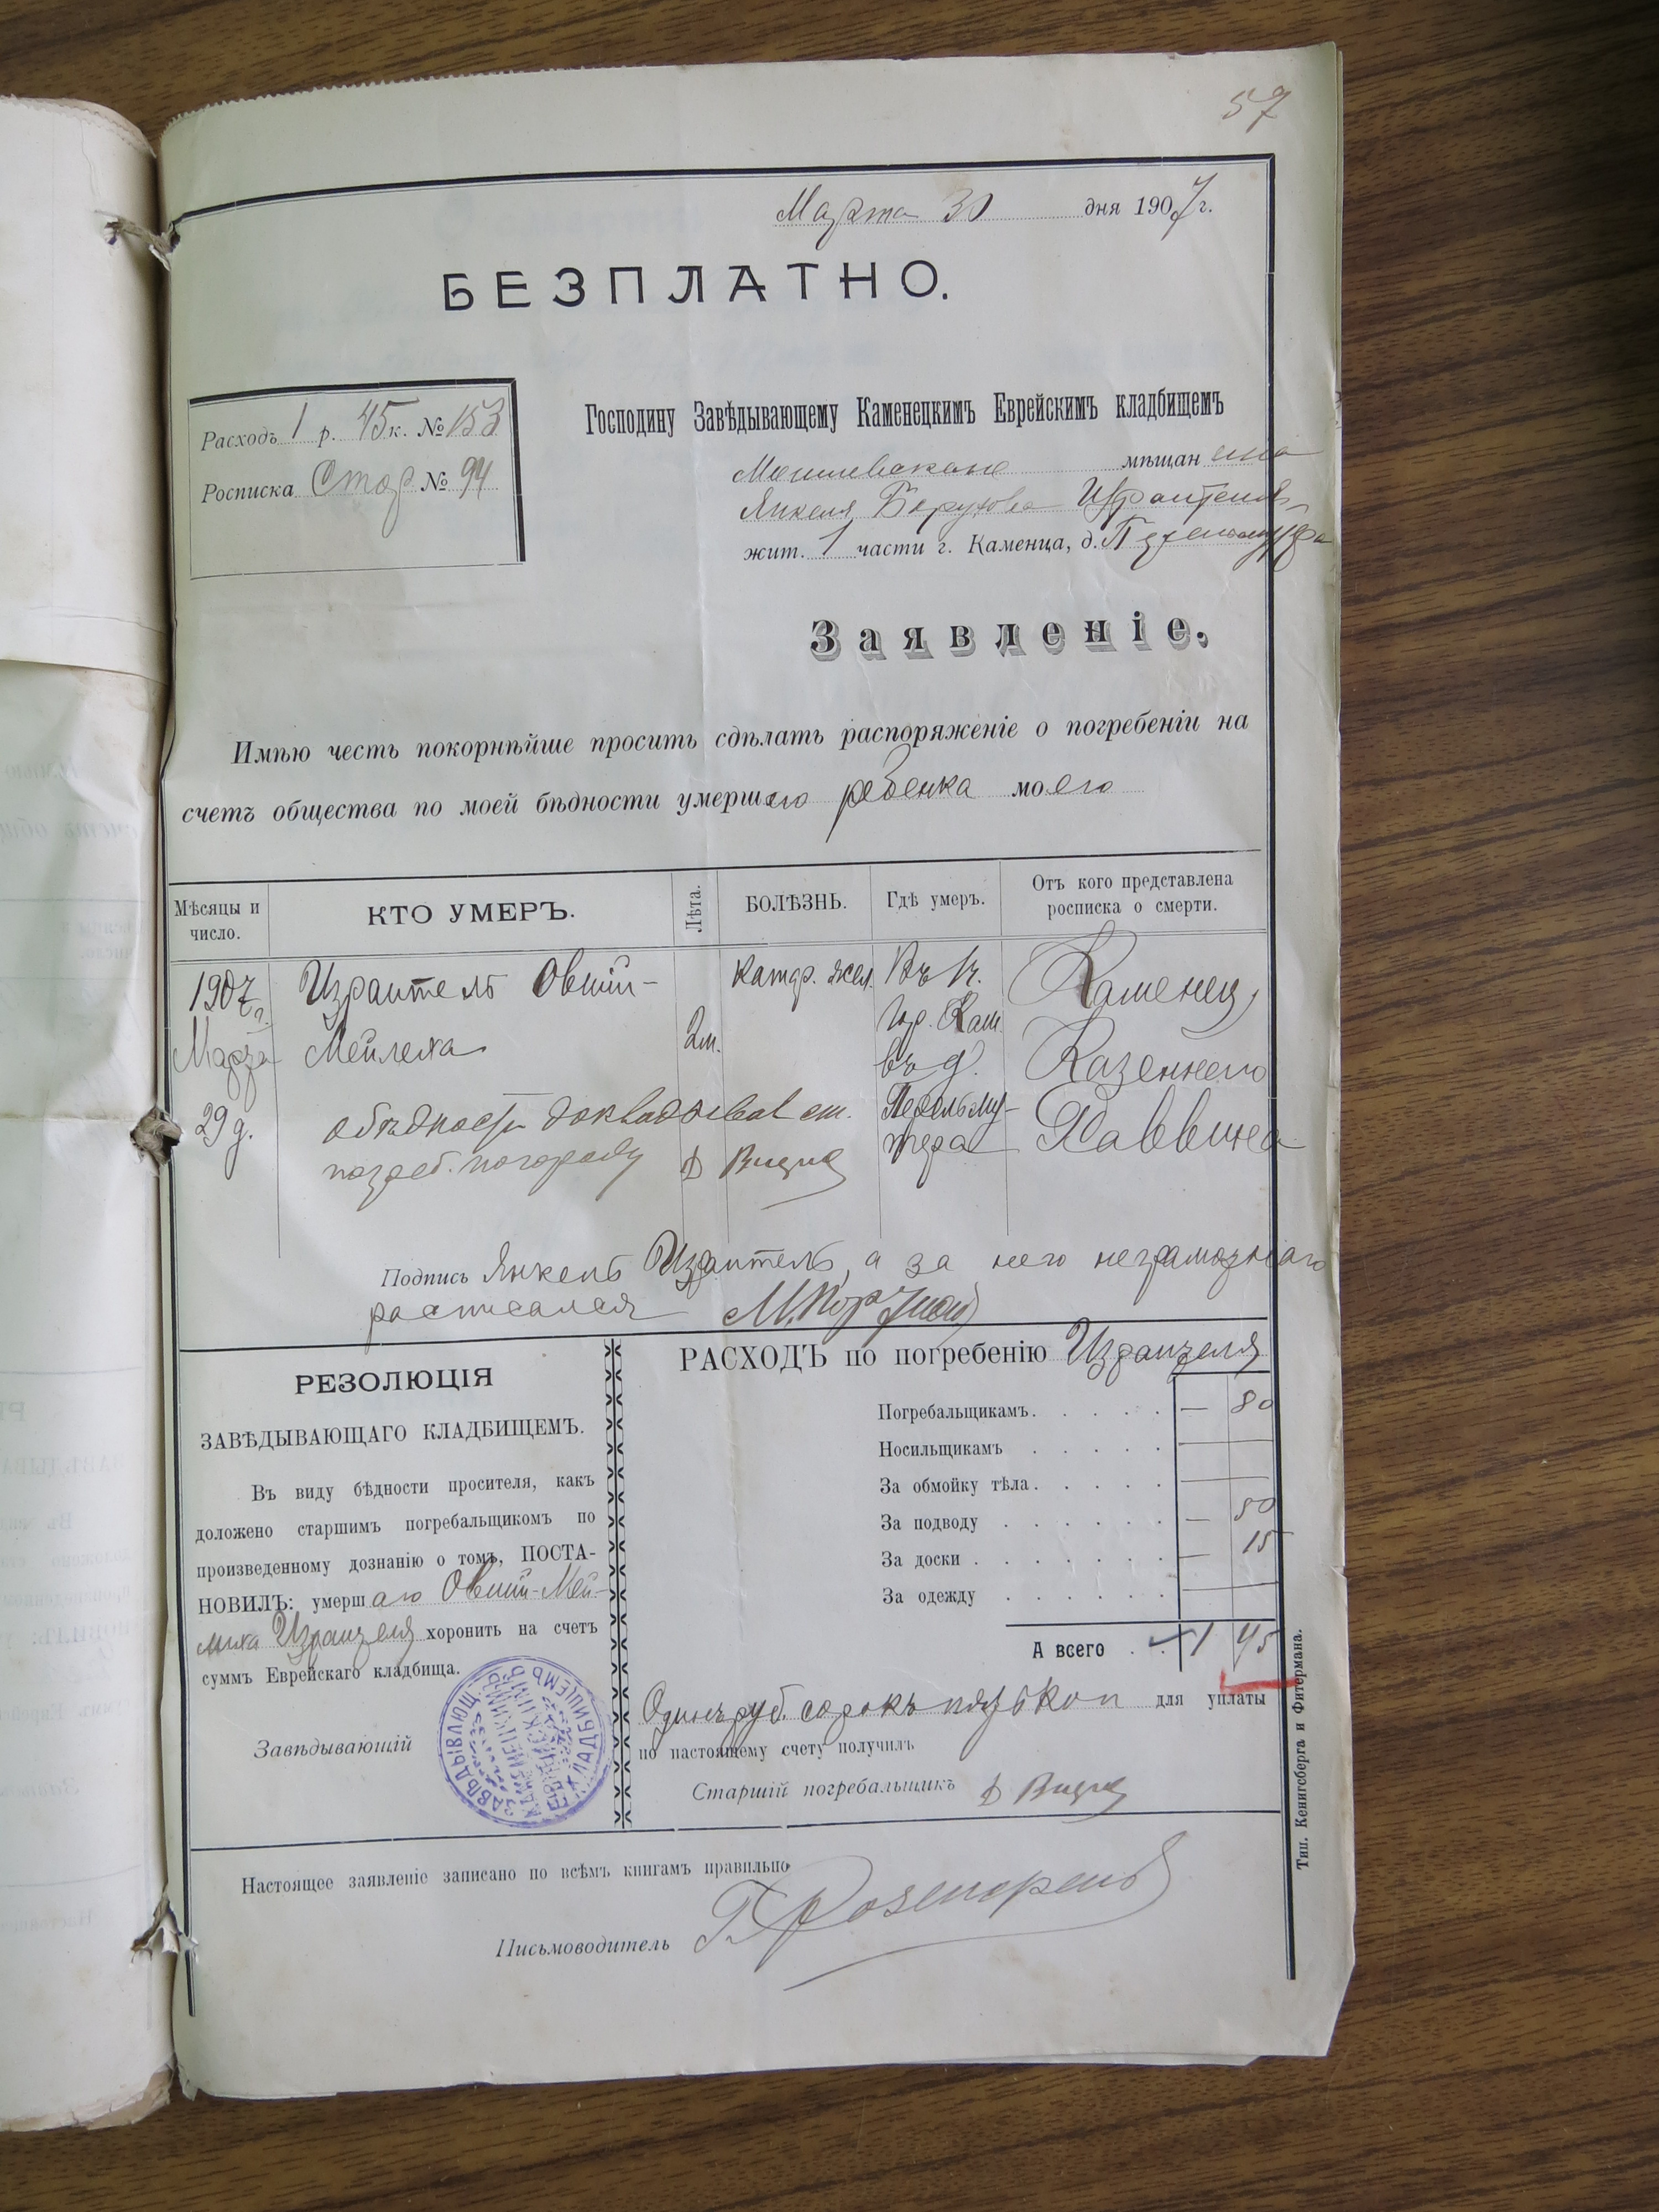 57
Марта 30 дня 1907 г.
БЕЗПЛАТНО.
Расходъ 1 р. 45 к. № 153
Росписка Стар. № 94
Господину Завѣдывающему Каменецкимъ Еврейскимъ кладбищемъ
мѣщанина
Янкеля Борухова Израителя
жит. 1 части г. Каменца, д.
Заявленіе.
Имѣю честь покорнѣйше просить сдѣлать распоряженіе о погребеніи на
счетъ общества по моей бѣдности умершаго ребенка моего
Мѣсяцы и число.
КТО УМЕРЪ.
Лѣта.
БОЛѢЗНЬ.
Гдѣ умеръ.
Отъ кого представлена росписка о смерти.
1907 г. Израитель Овшій- Катар. жел. Въ Каменец,
Гор. Кам.
Марта Мейлеха 2 м. въ д. Казеннаго
29 д. Перельму- Раввина
тера
о бѣдности докладывал ст.
погреб. Д
Подпись Янкель Израитель, а за него неграмотнаго
росписался М.
РЕЗОЛЮЦІЯ
ЗАВѢДЫВАЮЩАГО КЛАДБИЩЕМЪ.
Въ виду бѣдности просителя, какъ
доложено старшимъ погребальщикомъ по
произведенному дознанію о томъ, ПОСТА-
НОВИЛЪ: умершаго Овшій-Мей-
лиха Израителя хоронить на счетъ
суммъ Еврейскаго кладбища.
Завѣдывающій
ЗАВѢДЫВАЮЩ. КАМЕНЕЦКИМЪ ЕВРЕЙСКИМЪ КЛАДБИЩЕМЪ
РАСХОДЪ по погребенію Израителя
Погребальщикамъ. . . . . — 80
Носильщикамъ . . . . .
За обмойку тѣла. . . . .
За подводу . . . . . . — 50
За доски . . . . . . . — 15
За одежду . . . . . .
А всего . . 1 45
Одинъ руб. сорокъ пять коп для уплаты
по настоящему счету получилъ
Старшій погребальщикъ Д
Настоящее заявленіе записано по всѣмъ книгамъ правильно
Письмоводитель
Тип. Кенигсберга и Фитермана.